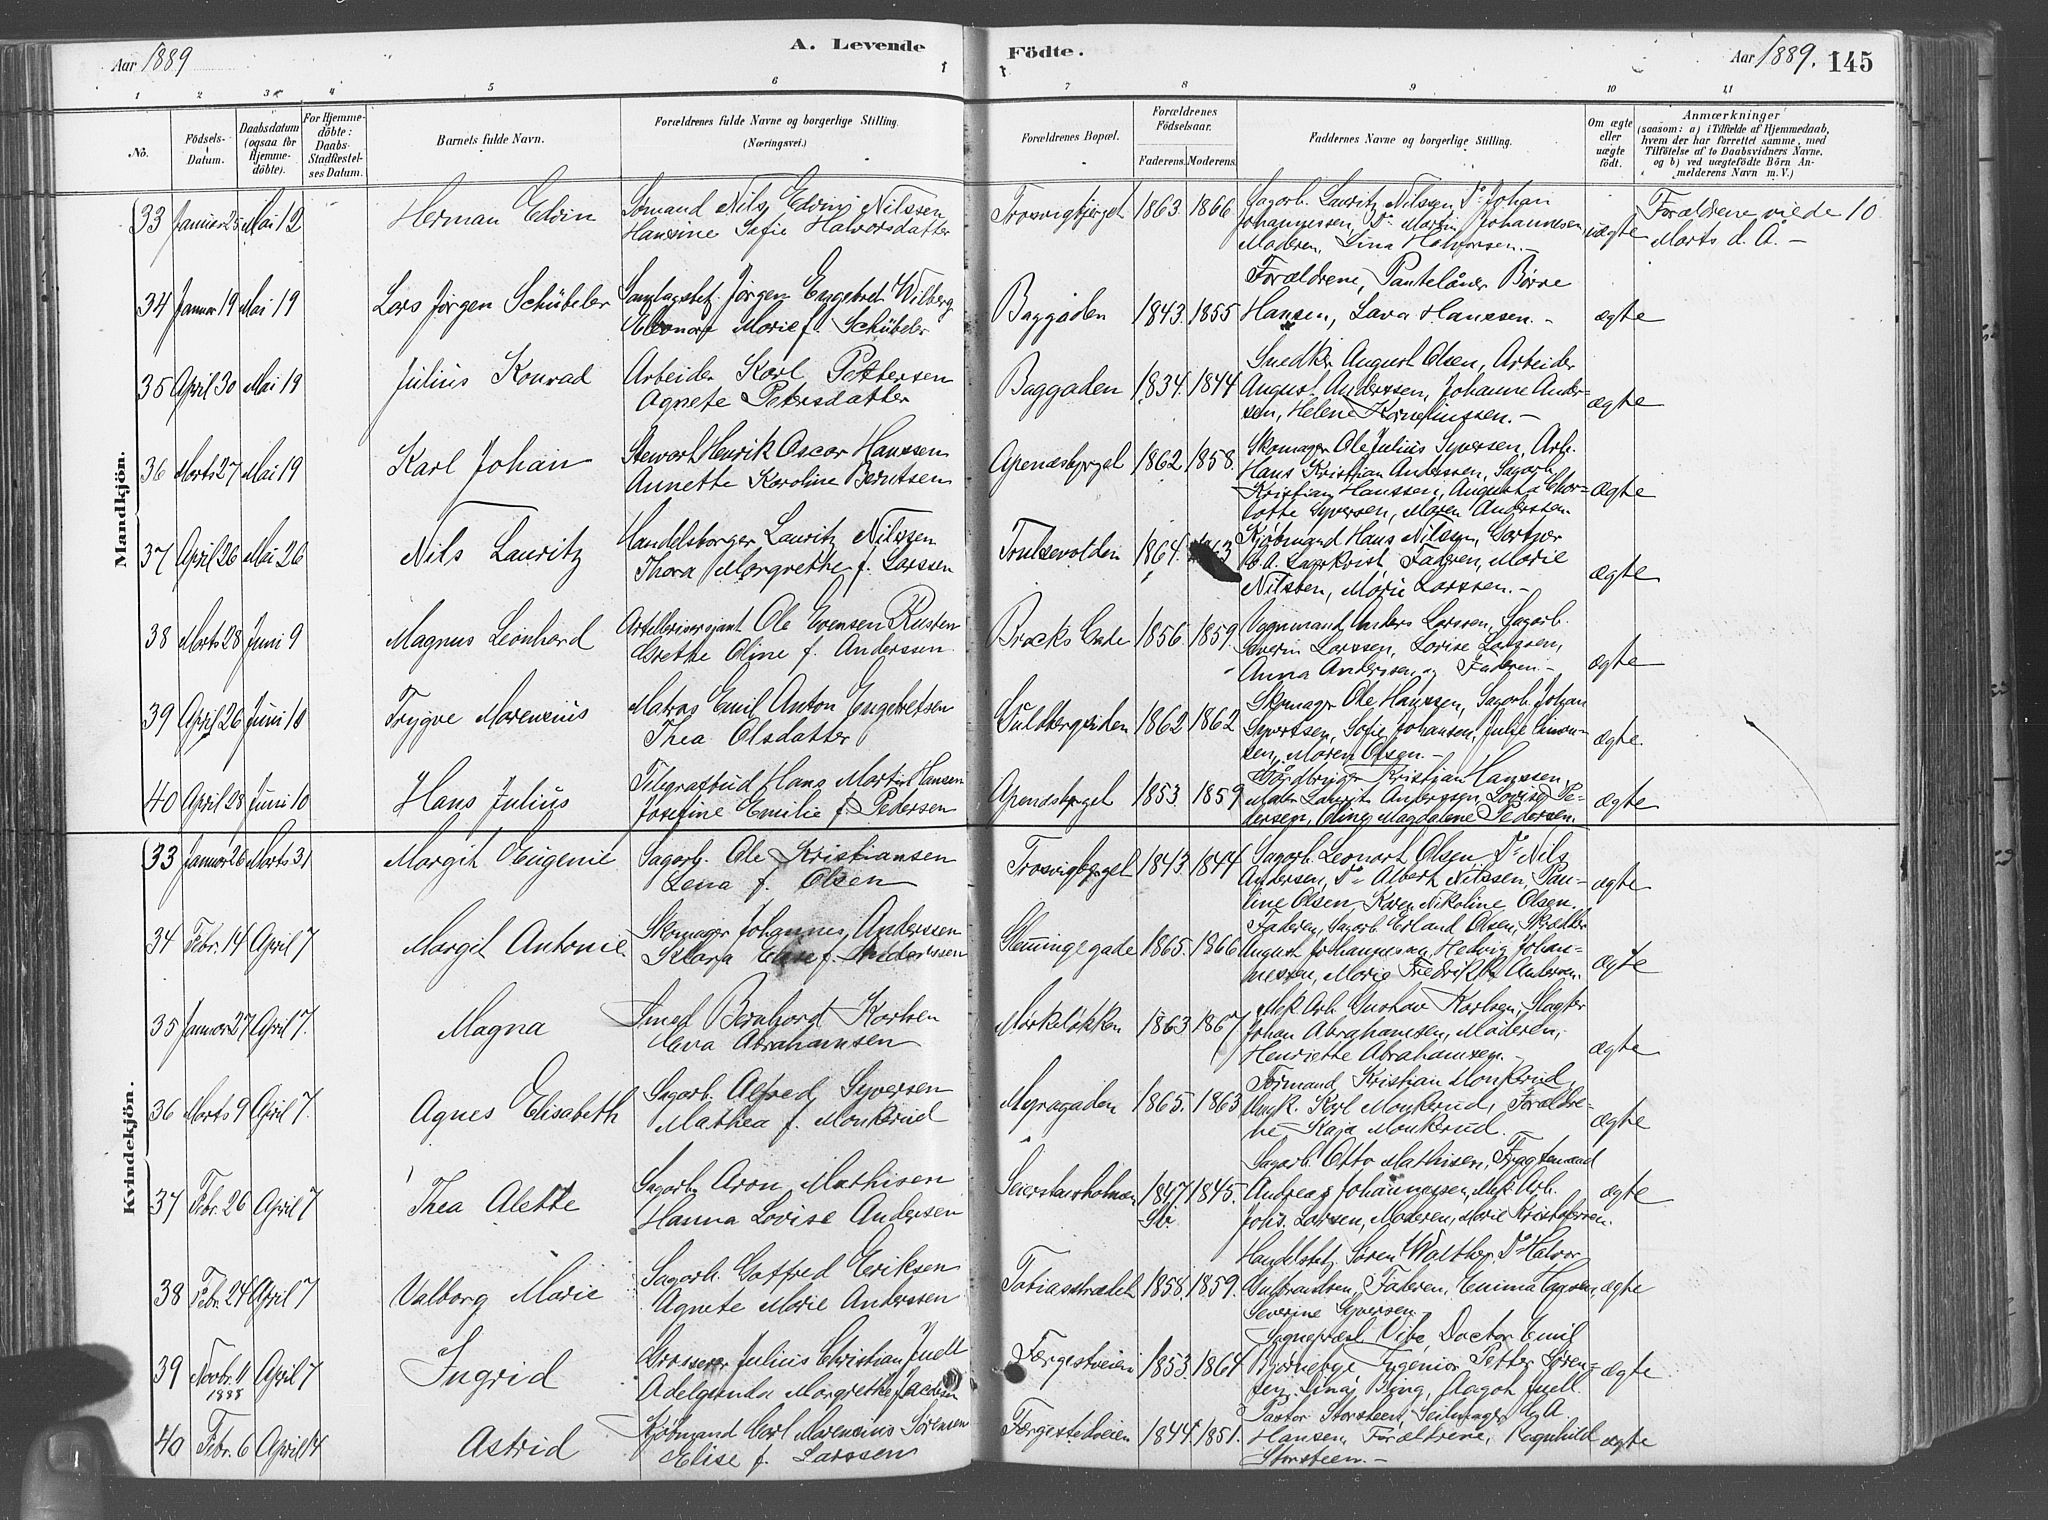 Aar 1889
A. Levende
Födte.
Aar 1889.
145
1 2 3 4 5 6 7 8 9 10 11
No.
Födsels-
Datum.
Daabsdatum
(ogsaa for
Hjemme-
döbte).
For Hjemme-
döbte:
Daabs-
Stadfestel-
ses Datum.
Barnets fulde Navn.
Forældrenes fulde Navne og borgerlige Stilling.
(Næringsvei.)
Forældrenes Bopæl.
Forældrenes
Födselsaar.
Faderens. Moderens.
Faddernes Navne og borgerlige Stilling.
Om ægte
eller
uægte
födt.
Anmærkninger
(saasom: a) i Tilfælde af Hjemmedaab,
hvem der har forrettet samme, med
Tilföielse af to Daabsvidners Navne,
og b) ved uægtefödte Börn An-
melderens Navn m. V.)
Mandkjön.
33 Januar 25 Mai 12
Herman Edvin
Sömand Nils Edvin Nilssen
Hansine Sofie Halvorsdatter
Trosvigbjerget 1863. 1866
Sagarb. Lauritz Nilssen, Do Johan
Johannessen, Do Martin Johannessen,
Moderen, Lina Halvorsen.-
uægte
Forældrene viede 10
Marts d. A. -
34 Januar 19 Mai 19
Lars Jörgen Schübeler
Jörgen Engebret Wilberg
Eleonore Marie f. Schübeler
Baggaden 1843. 1855
Forældrene, Pantelåner Börre
Hansen, Lava Hanssen. -
ægte
35 April 30 Mai 19
Julius Konrad
Arbeider Karl Pettersen
Agnete Petersdatter
Baggaden 1834. 1844
Snedker August Olsen, Arbeider
August Anderssen, Johanne Ander-
sen, Helene Korneliussen. -
ægte
36 Marts 27 Mai 19
Karl Johan
Stewart Henrik Oscar Hanssen
Annette Karoline Berntsen
Apenæsbjergel 1862. 1858.
Skomager Ole Julius Syversen, Arb.
Hans Kristian Anderssen, Sagarb.
Kristian Hanssen, Augusta Char-
lotte Syversen, Maren Anderssen.
ægte
37 April 26 Mai 26
Nils Lauritz
Handelsborger Lauritz Nilssen
Thora Margrethe f. Larssen
Trulsevolden 1864.
Kjöbmand Hans Nilssen, Gartner
Faderen, Marie
Nilssen, Marie Larssen. -
ægte
38 Marts 28 Juni 9
Magnus Leonhard
Artillerisergiant Ole Evensen Rusten
Grethe Oline f. Anderssen.
Brocks Gade 1856. 1859.
Vognmand Anders Larssen, Sagarb.
Severin Larssen, Lovise Larssen,
Anna Anderssen, Faderen. -
ægte
39 April 26 Juni 10
Trygve Marenzius
Matros Emil Anton Engebretsen
Thea Olsdatter
Guldbergsiden 1862 1862
Skomager Ole Hanssen, Sagarb. Johan
Syvertsen, Sofie Johansen, Julie Simon-
sen, Maren Olsen. -
ægte.
40 April 28 Juni 10
Hans Julius
Telegrafbud Hans Martin Hansen
Josefine Emilie f. Pedersen
Apenæsbjergel 1853 1859
Gårdbruger Kristian Hanssen,
Maler Lauritz Anderssen, Lovise Pe-
dersen, Oline Magdalene Pedersen.
ægte
Kvindekjön.
33 Januar 26 Marts 31
Margit Eugenie
Sagarb. Ole Kristiansen
Lena f. Olsen
Trosvigbjergel 1843. 1844
Sagarb. Leonart Olsen, Do Nils
Andersen, Do Albert Nilssen, Pau-
line Olsen, Karen Nikoline Olsen.
ægte
34 Febr. 14 April 7
Margit Antonie.
Skomager Johannes Anderssen
Klara Elise f. Anderssen
Glemmingegade 1865. 1866
Faderen, Sagarb. Erland Olsen, Skrædder
August Johannessen, Hedvig Johan-
nessen, Marie Fredrikke Andersen.
ægte
35 Januar 27 April 7.
Magna
Smed Bernhard Karlsen
Eva Abrahamsen
Mörkelökken 1863 1867
Mek. Arb. Gustav Karlsen, Slagter
Johan Abrahamsen, Moderen,
Henriette Abrahamsen. -
ægte
36 Marts 9 April 7.
Agnes Elisabeth
Sagarb. Alfred Syversen
Mathea f. Monkerud
Myragaden 1865. 1863
Formand Kristian Monkerud,
Karl Monkerud, Forældre-
ne - Kaja Monkerud.
ægte
37 Febr. 26 April 7
Thea Alette
Sagarb. Aron Mathisen
Hanna Lovise Andersen
1847. 1845.
Sagarb. Otto Mathisen, Frygtemand
Andreas Johannessen, Mek. Arb.
Johs. Larsen, Moderen, Marie Kristoffersen.
ægte
38 Febr. 24 April 7
Valborg Marie
Sagarb. Gotfred Eriksen
Agnete Marie Anderssen
Tobiasstrædet 1858. 1859.
Handelsbetj. Sören Walther, Do Halvor
Gulbrandsen, Faderen, Emma Hansen,
Severine Syversen.
ægte
39 Novbr. 11 1888 April 7
Ingrid
Grosserer Julius Christian Juell
Adelgunda Margrethe f. Jacobsen
Færgestedveien 1853. 1864
Sogneprest Vibe, Doctor Emil
Bjørnebye, Ingeniör Petter Sören-
sen, Lina Bing, Aagot Juell.
ægte
40 Febr. 6 April 14
Astrid
Kjöbmand Carl Marenzius Sörensen
Elise f. Larssen
Færgestedveien 1844. 1851.
Pastor Storsteen, Seilmager A.
Hansen, Forældrene, Ragnhild
Storsteen. -
ægte